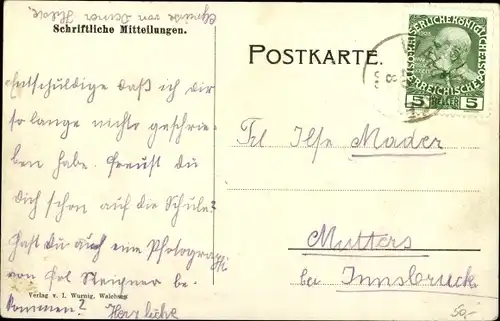 Grüsse von Deiner Hilde
Schriftliche Mitteilungen.
Entschuldige daß ich dir
so lange nichts geschrie-
ben habe. Freust du
dich schon auf die Schule?
Hast du auch eine Photographi
von Frl Steigner be-
kommen? Herzliche
Verlag v. I. Wurnig, Walchsee
POSTKARTE.
KAISERLICHE KÖNIGLICHE
ÖSTERREICHISCHE POST
5 HELLER 5
Frl Ilse Mader
Mutters
bei Innsbruck
50,-